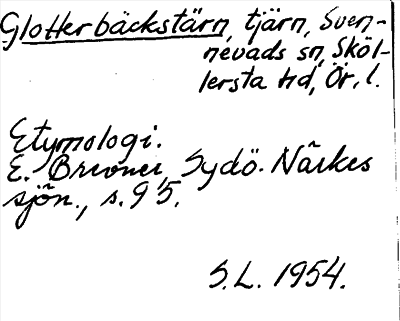 Glotterbäckstärn, tjärn, Sven-
nevads sn, Sköl-
lersta hd, Ör. l.
Etymologi.
E. Brevner, Sydö. Närkes
sjön., s. 95.
S.L. 1954.